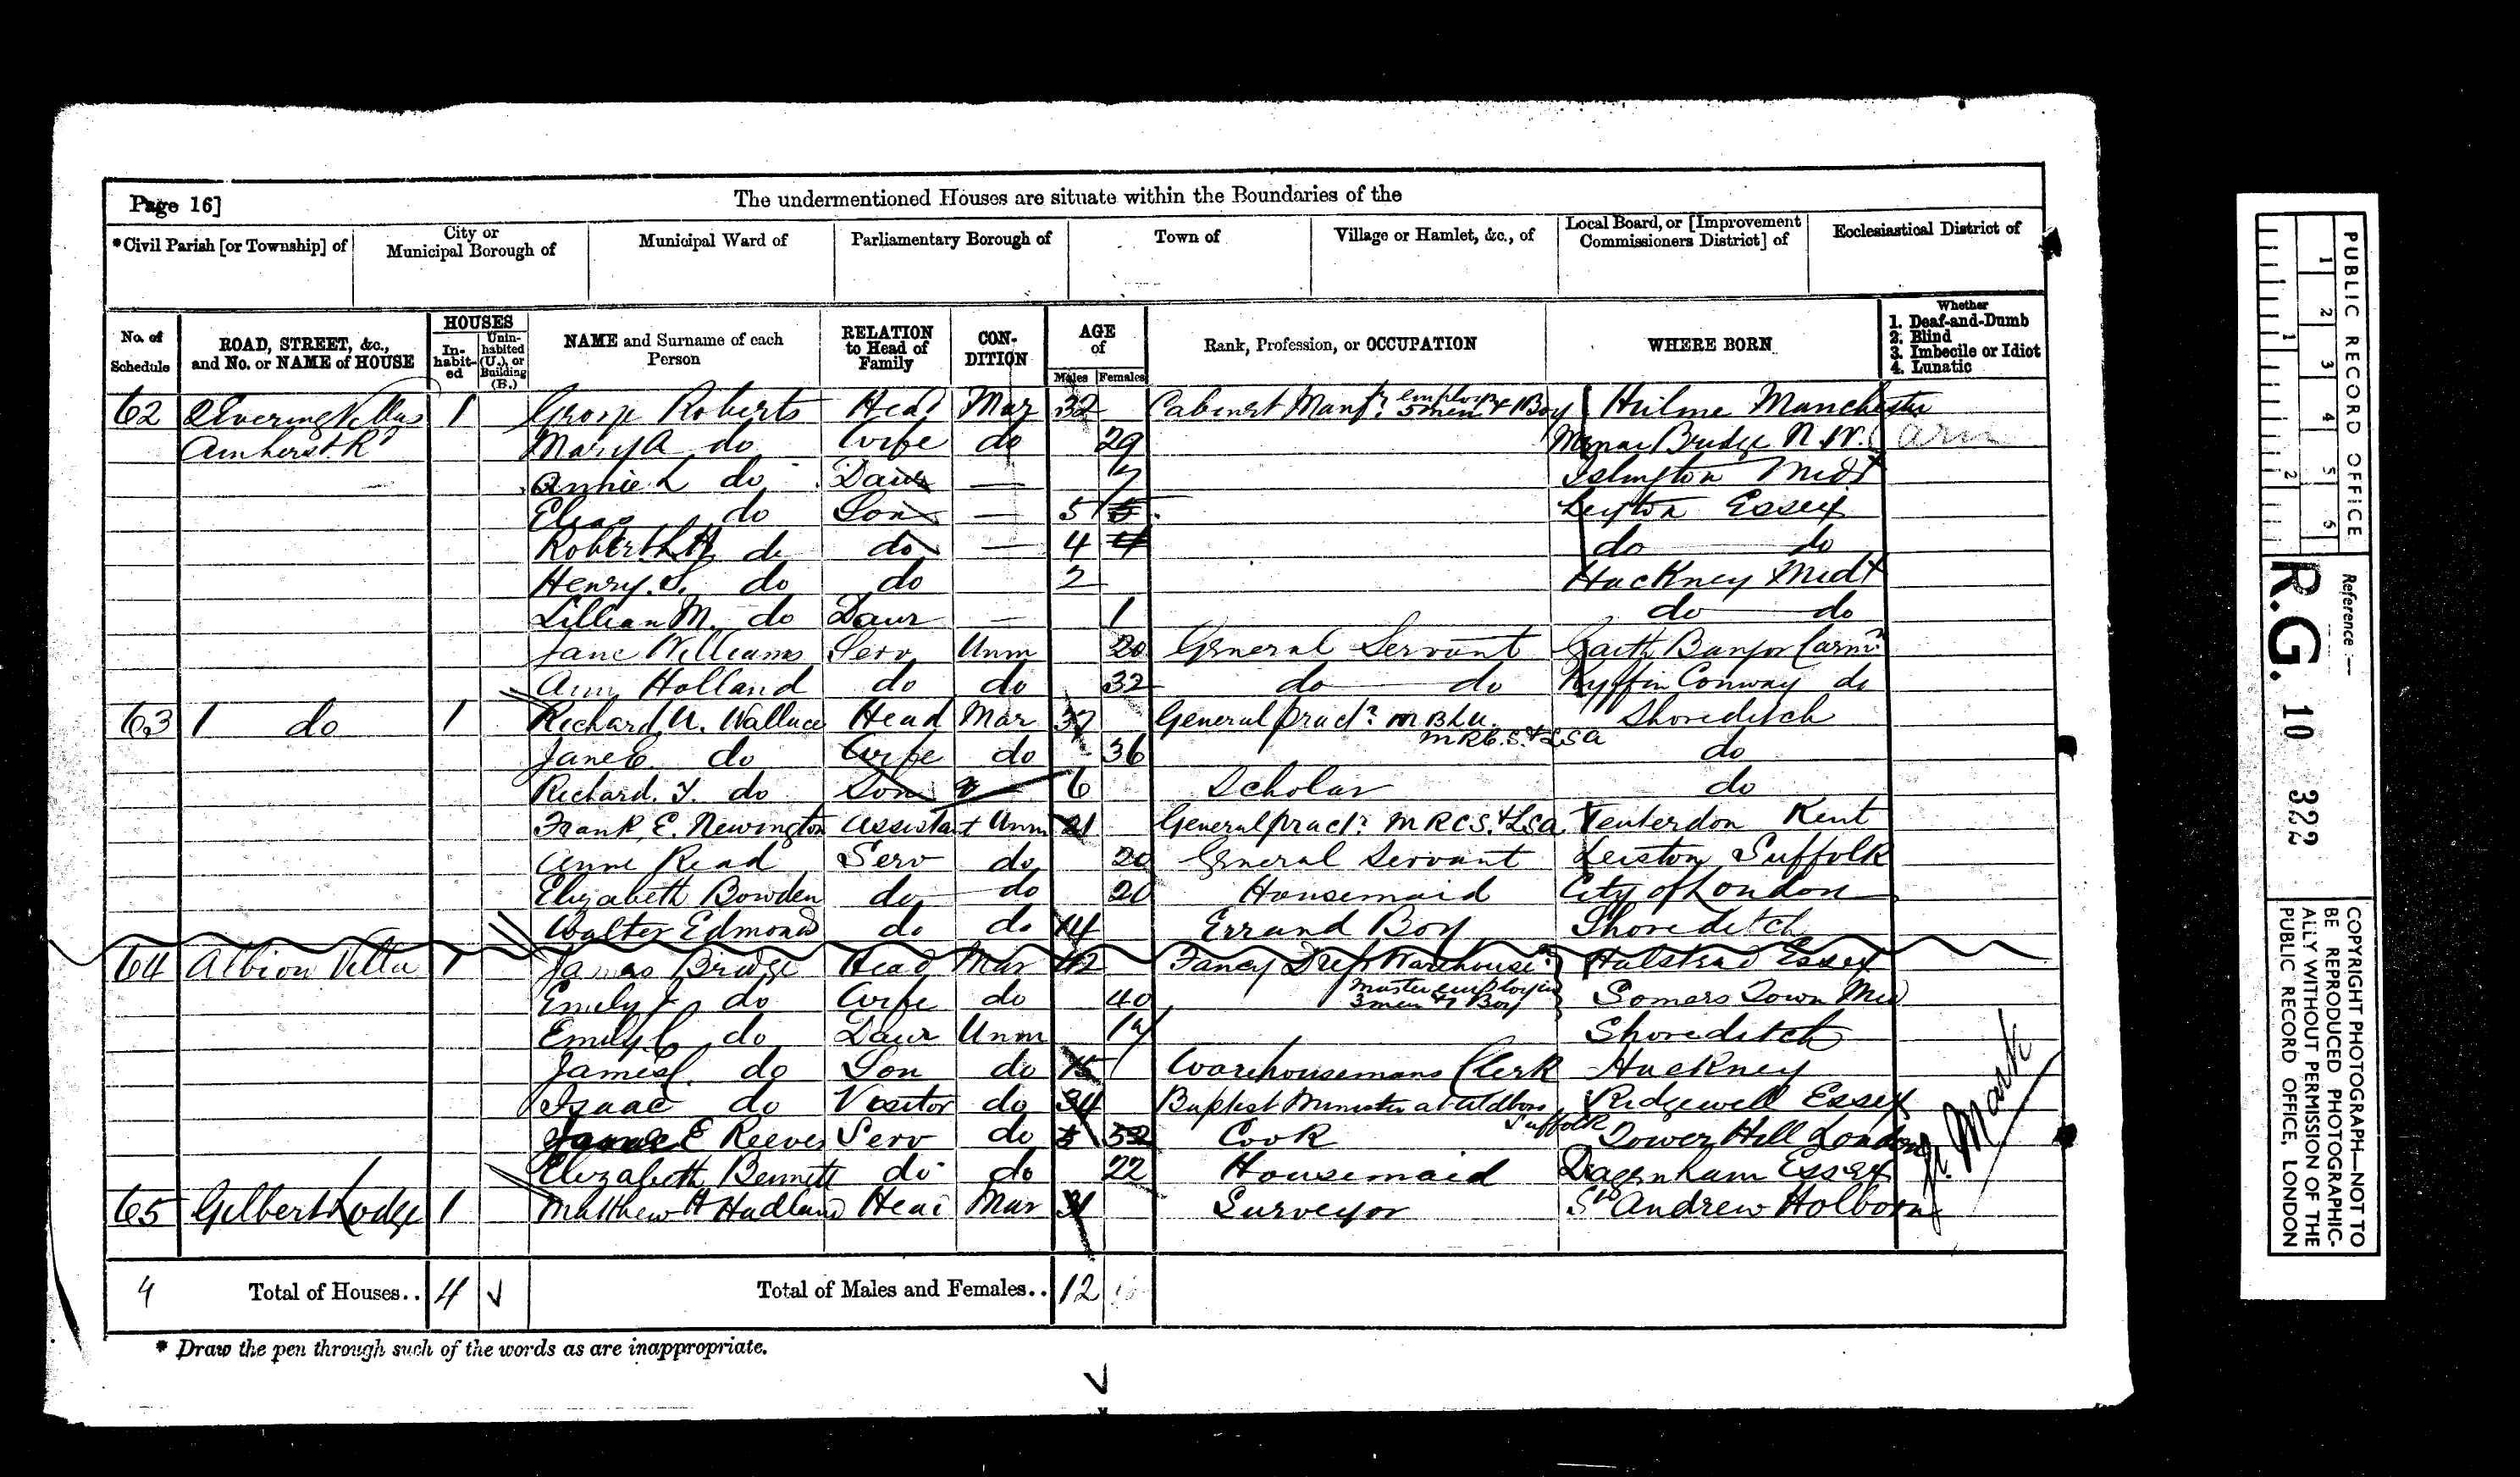 Page 16]
The undermentioned Houses are situate within the Boundaries of the
*Civil Parish [or Township] of
City or Municipal Borough of
Municipal Ward of
Parliamentary Borough of
Town of
Village or Hamlet, &c., of
Local Board, or [Improvement Commissioners District] of
Ecclesiastical District of
No. of Schedule
ROAD, STREET, &c., and No. or NAME of HOUSE
HOUSES
In-habit-ed
Unin-habited (U.), or Building (B.)
NAME and Surname of each Person
RELATION to Head of Family
CON-DITION
AGE of
Males
Females
Rank, Profession, or OCCUPATION
WHERE BORN
Whether
1. Deaf-and-Dumb
2. Blind
3. Imbecile or Idiot
4. Lunatic
62 2 Evering Villas 1 George Roberts Head Mar 32 Cabinet Manfr employing 5 men & 1 Boy Hulme Manchester
Amherst Rd Mary A do Wife do 29 Menai Bridge N. W.
Annie L do Daur — 7 Islington Midx
do Son — 5 5 Leyton Essex
Robert do do — 4 4 do do
Henry. S. do do 2 Hackney Midx
Lillian M. do Daur — 1 do do
Jane Williams Serv Unm 20 General Servant Bangor Carn
Ann Holland do do 32 do do Gyffin Conway do
63 1 do 1 Richard U. Wallace Head Mar 37 General Pract. M B L U. Shoreditch
M R C. S. & L S A
Jane E do Wife do 36 do
Richard. T. do Son 6 Scholar do
Frank. E. Newington Assistant Unm 21 General Pract. M R C S. & L S A Tenterdon Kent
Anne Read Serv do 20 General Servant Leiston Suffolk
Elizabeth Bowden do do 20 Housemaid City of London
Walter Edmond do do 14 Errand Boy Shoreditch
64 Albion Villa 1 James Bridge Head Mar 42 Fancy Dress Warehouse Halstead Essex
Emily J do Wife do 40 Master employing 3 men & 1 Boy Somers Town Mid
Emily C do Daur Unm 17 Shoreditch
James C. do Son do 15 Warehousemans Clerk Hackney
Isaac do Visitor do 34 Baptist Minister at Aldboro Suffolk Ridgewell Essex
E Reeves Serv do 5 52 Cook Tower Hill London
Elizabeth Bennett do do 22 Housemaid Dagenham Essex
65 Gilbert Lodge 1 Matthew H Hadland Head Mar 31 Surveyor St Andrew Holborn
St. Mark
4 Total of Houses.. 4 Total of Males and Females.. 12
* Draw the pen through such of the words as are inappropriate.
PUBLIC RECORD OFFICE
1 2 3 4 5 6
1 2
Reference :—
R.G. 10 322
COPYRIGHT PHOTOGRAPH—NOT TO
BE REPRODUCED PHOTOGRAPHIC-
ALLY WITHOUT PERMISSION OF THE
PUBLIC RECORD OFFICE, LONDON